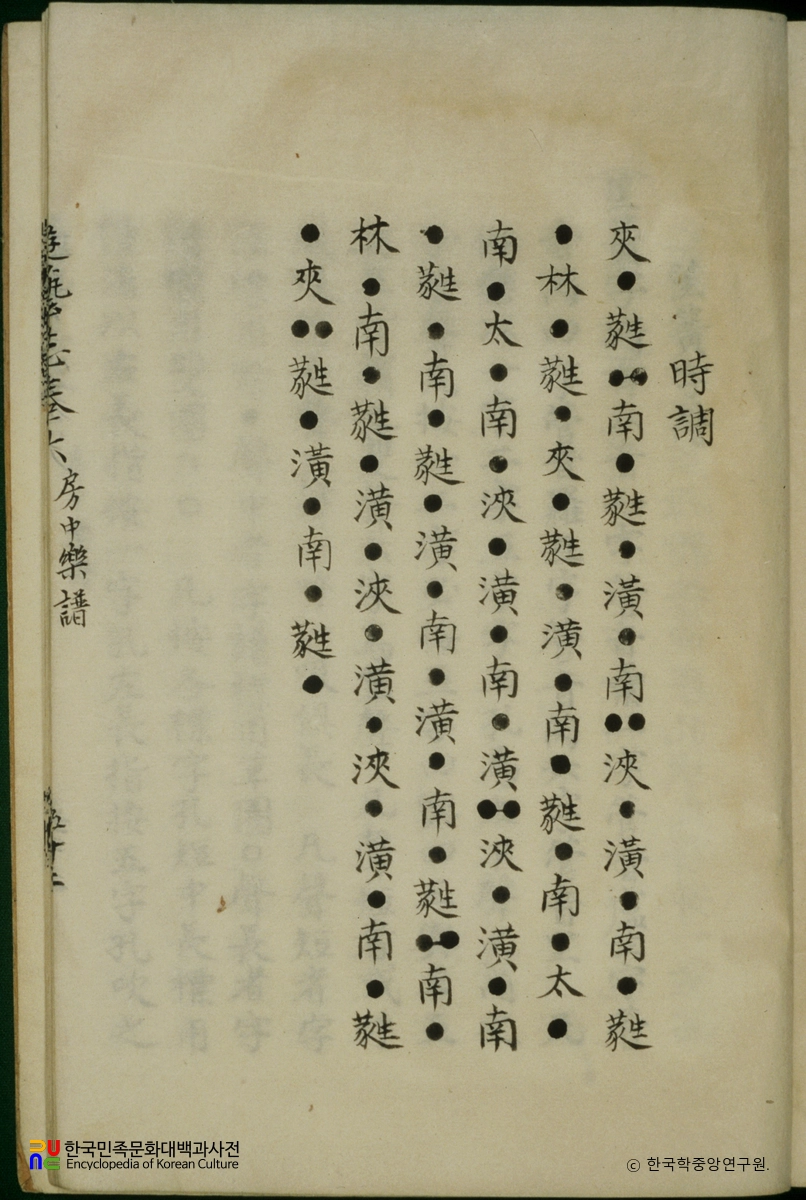 時調
夾●蕤●●南●蕤●潢●南●●浹●潢●南●蕤
●林●蕤●夾●蕤●潢●南●蕤●南●太●
南●太●南●浹●潢●南●潢●●浹●潢●南
●蕤●南●蕤●潢●南●潢●南●蕤●●南●
林●南●蕤●潢●浹●潢●浹●潢●南●蕤
●夾●●蕤●潢●南●蕤●
遊藝志卷六 房中樂譜
한국민족문화대백과사전
Encyclopedia of Korean Culture
ⓒ 한국학중앙연구원.